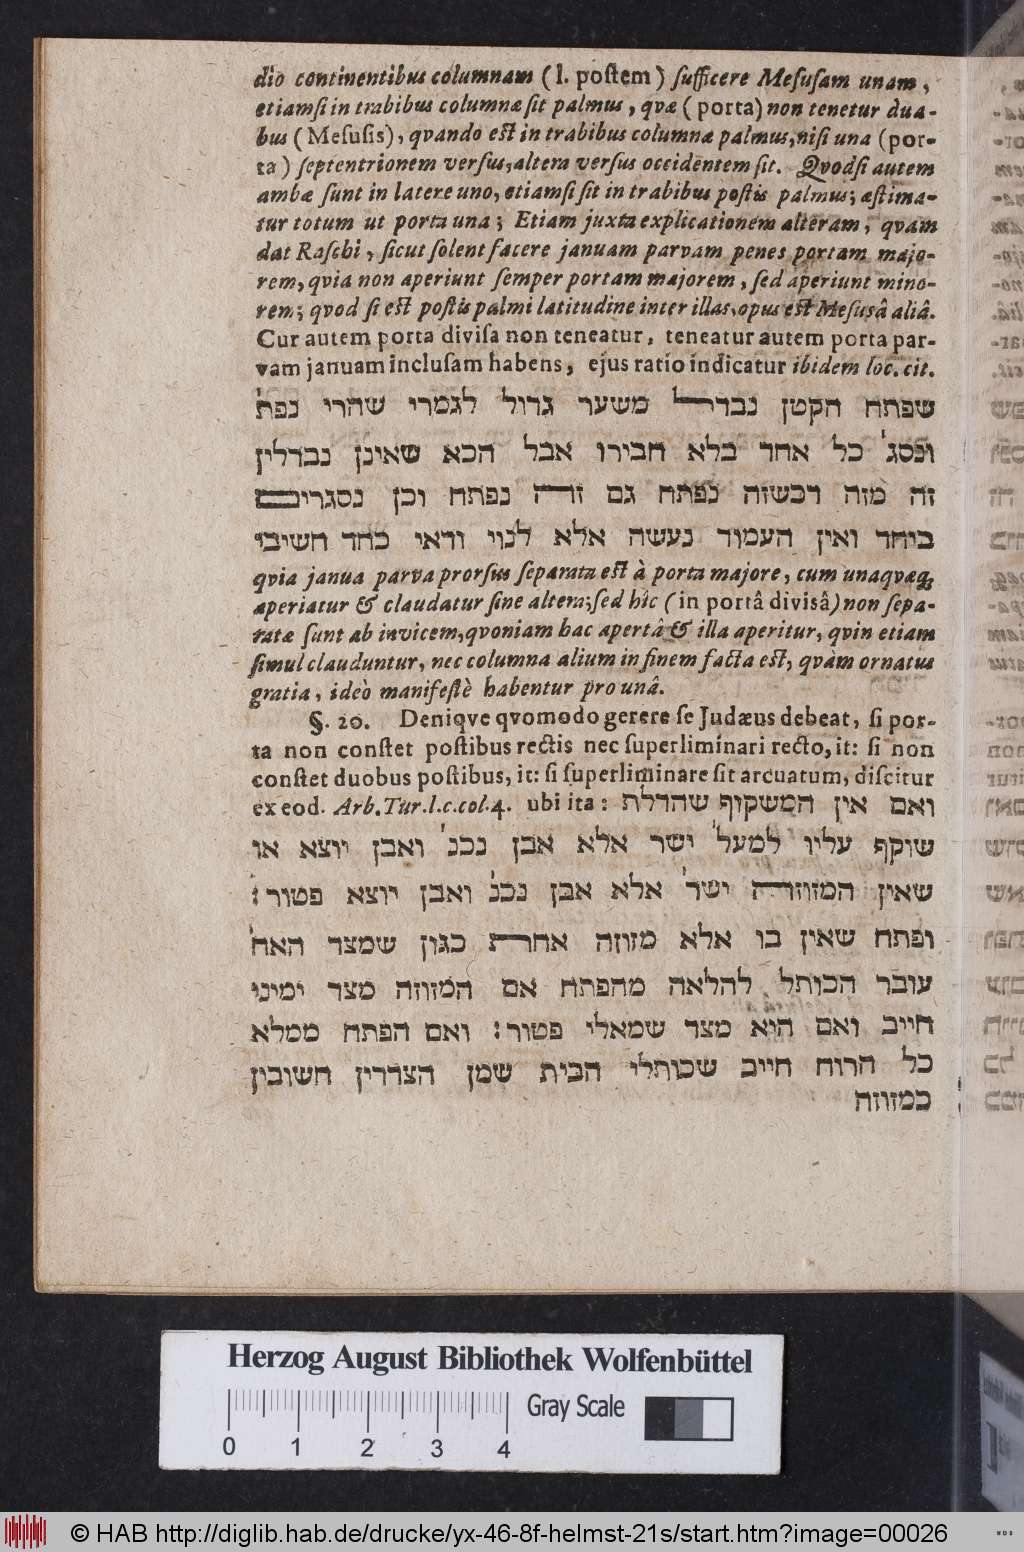 dio continentibus columnam (l. poſtem) ſufficere Meſuſam unam,
etiamſi in trabibus columnæ ſit palmus, qvæ (porta) non tenetur dua-
bus (Meſuſis), qvando eſt in trabibus columnæ palmus, niſi una (por-
ta) ſeptentrionem verſus, altera verſus occidentem ſit. Qvodſi autem
ambæ ſunt in latere uno, etiamſi ſit in trabibus poſtis palmus; æſtima-
tur totum ut porta una; Etiam juxta explicationem alteram, qvam
dat Raſchi, ſicut ſolent facere januam parvam penes portam majo-
rem, qvia non aperiunt ſemper portam majorem, ſed aperiunt mino-
rem; qvod ſi eſt poſtis palmi latitudine inter illas, opus eſt Meſusâ aliâ.
Cur autem porta diviſa non teneatur, teneatur autem porta par-
vam januam incluſam habens, ejus ratio indicatur ibidem loc. cit.
שפתח הקטן נבדל משער גדול לגמרי שהרי נפת'
ונסג' כל אחד בלא חבירו אבל הכא שאינן נבדלין
זה מזה דכשזה נפתח גם זה נפתח וכן נסגרים
ביחד ואין העמוד נעשה אלא לנוי ודאי כחד חשיבי
qvia janua parva prorſus ſeparata eſt à porta majore, cum unaqvæq;
aperiatur & claudatur ſine altera; ſed hîc (in portâ divisâ) non ſepa-
ratæ ſunt ab invicem, qvoniam hac apertâ & illa aperitur, qvin etiam
ſimul clauduntur, nec columna alium in finem facta eſt, qvàm ornatus
gratia, ideò manifeſtè habentur pro unâ.
§. 20. Deniqve qvomodo gerere ſe Judæus debeat, ſi por-
ta non conſtet poſtibus rectis nec ſuperliminari recto, it: ſi non
conſtet duobus poſtibus, it: ſi ſuperliminare ſit arcuatum, diſcitur
ex eod. Arb. Tur. l. c. col. 4. ubi ita: ואם אין המשקוף שהדלת
שוקף עליו למעל' ישר אלא אבן נכנ' ואבן יוצא או
שאין המזוזה ישר' אלא אבן נכנ' ואבן יוצא פטור:
ופתח שאין בו אלא מזוזה אחרת כגון שמצד האח'
עובר הכותל להלאה מהפתח אם המזוזה מצד ימינו
חייב ואם היא מצד שמאלי פטור: ואם הפתח ממלא
כל הרוח חייב שכותלי הבית שמן הצדדין חשובין
כמזוזה
Herzog August Bibliothek Wolfenbüttel
Gray Scale
0 1 2 3 4
© HAB http://diglib.hab.de/drucke/yx-46-8f-helmst-21s/start.htm?image=00026